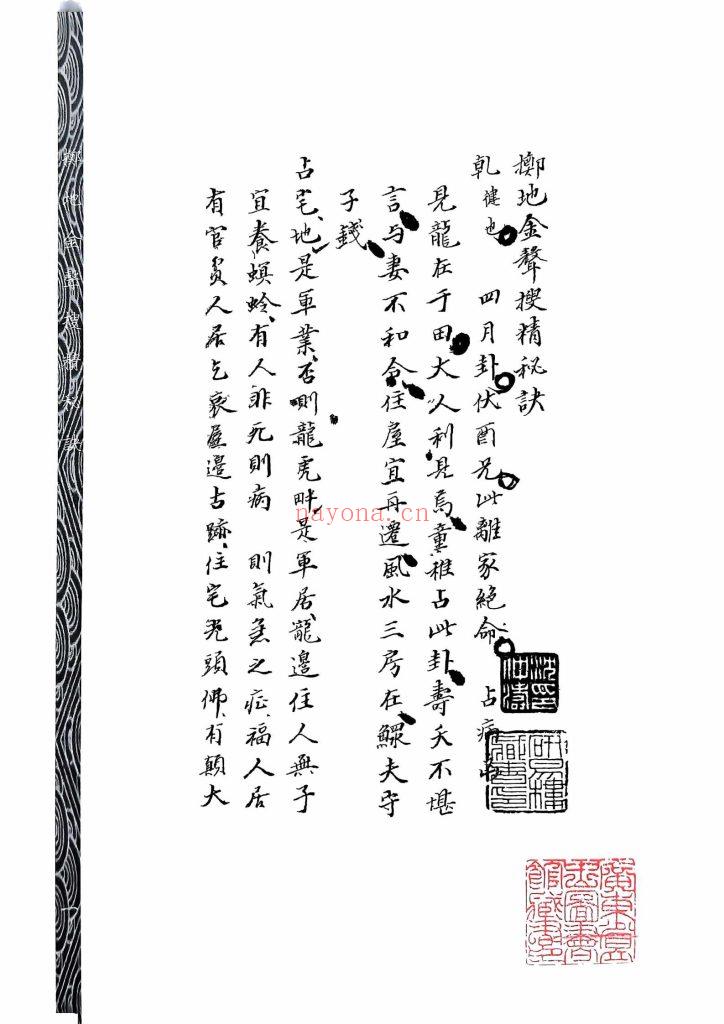 擲地金聲搜精秘訣
乾健也 四月卦伏酉兄此離家絕命 占病
見龍在于田大人利見焉童稚占此卦壽夭不堪
言与妻不和合住屋宜再遷風水三房在鰥夫守
子錢
占宅地是軍業否則龍虎畔是軍居龍邊住人無子
宜養螟蛉有人非死則病 則氣急之症福人居
有官貴人居乞衰屋邊古跡住宅光頭佛有顛大
擲地金聲搜精秘訣
nayona.cn
廣東省
圖書
館藏書